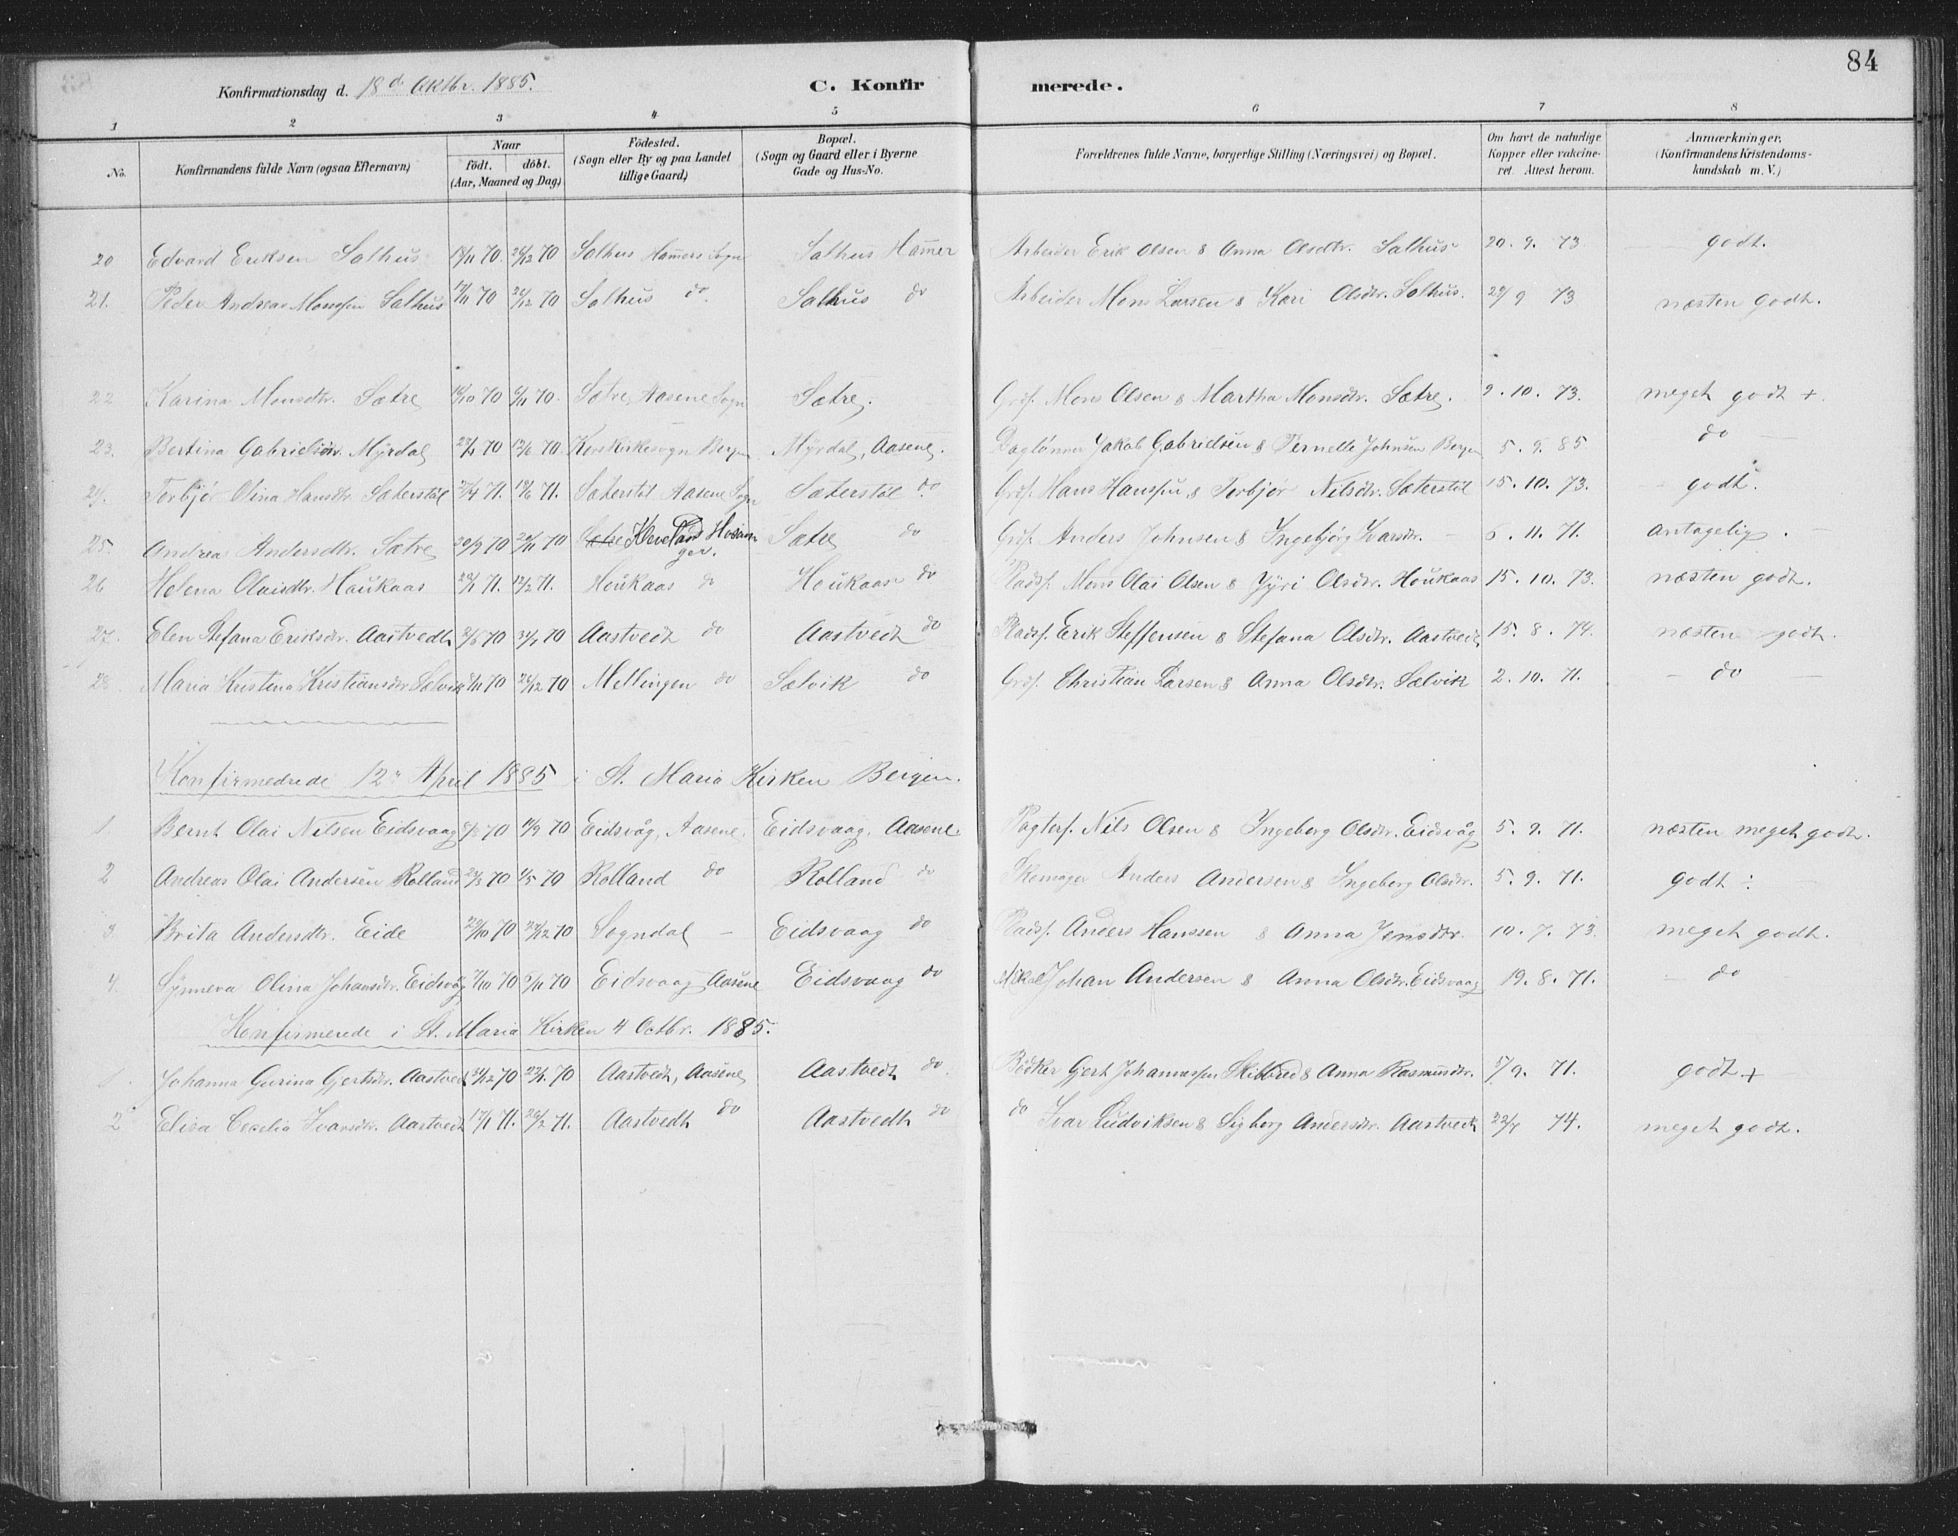 84
Konfirmationsdag d. 18d Oktbr. 1885. C. Konfirmerede.
1 2 3 4 5 6 7 8
No. Konfirmandens fulde Navn (ogsaa Efternavn) Naar födt. döbt. (Aar, Maaned og Dag) Födested. (Sogn eller By og paa Landet tillige Gaard) Bopæl. (Sogn og Gaard eller i Byerne Gade og Hus-No. Forældrenes fulde Navne, borgerlige Stilling (Næringsvei) og Bopæl. Om havt de naturlige Kopper eller vakcineret. Attest herom. Anmærkninger. (Konfirmandens Kristendomskundskab m. V.)
20 Edvard Eriksen Salhus 70. 26/12 70 Salhus Hamers Sogn Salhus Hamer Arbeider Erik Olsen & Anna Olsdtr. Salhus 20. 9. 73 godt.
21. Peder Andreas Monssen Salhus 70 26/12 70 Salhus do Salhus do Arbeider Mons Larsen & Kari Olsdtr. Salhus. 29/9 73 næsten godt.
22 Karina Monsdtr. Sætre 70 6/11 70. Sætre Aasene Sogn Sætre. Grdf. Mons Olsen & Martha Monsdr. Sætre. 2. 10. 73. meget godt +.
23. Bertina Gabrielsdr. Myrdal 70 12/6 70. Korskirkesogn Bergen Myrdal, Aasene. Daglønner Jakob Gabrielsen & Pernelle Johnsen Bergen 5. 9. 85 do
24. Torbjør Olina Hansdtr Sæterstøl 71. 18/6 71. Sæterstøl Aasene Sogn Sæterstøl do Grdf. Hans Hanssen & Torbjør Nilsdtr. Sæterstøl 15. 10. 73. godt.
25. Andrea Andersdtr. Sætre 20/9 70 20/11 70 Kleveland Hosanger. Sætre do Grdf. Anders Johnsen & Ingebjørg Ivarsdr. 6. 11. 71. antagelig.
26 Helena Olaisdtr. Haukaas 71. 12/2 71. Houkaas do Houkaas do Pladsf. Mons Olai Olsen & Jyri Olsdtr. Houkaas 15. 10. 73. næsten godt.
27. Elen Stefana Eriksdr. Aastvedt 70 31/7 70 Aastvedt do Aastvedt do Pladsf. Erik Steffensen & Stefana Olsdtr. Aastvedt 15. 8. 74. næsten godt.
28 Maria Kristina Kristiansdr Sælvik 70 26/12 70 Mellingen do Sælvik do Grdf. Christian Larsen & Anna Olsdtr. Sælvik 2. 10. 71. do
Konfirmedrede 12te April 1885 i St. Maria Kirken Bergen.
1 Bernt Olai Nilsen Eidsvaag 70 11/9 70 Eidsvåg, Aasene. Eidsvaag, Aasene. Pagterf. Nils Olsen & Ingeborg Olsdtr. Eidsvåg 5. 9. 71. næsten meget godt.
2 Andreas Olai Andersen Rolland 23/3 70 1/5 70 Rolland do Rolland do Skomager Anders Andersen & Ingeborg Olsdtr. 5. 9. 71. godt ÷
3 Brita Andersdtr. Eide 29/10 70 27/12 70 Sogndal – Eidsvaag do Pladsf. Anders Hanssen & Anna Jensdtr. 10. 7. 73. meget godt.
4. Synneva Olina Johansdr. Eidsvåg 7/10 70 6/11 70 Eidsvaag Aasene Eidsvaag do Johan Andersen & Anna Olsdtr. Eidsvaag 19. 8. 71. do
Konfirmerede i St. Maria Kirken 4 Octbr. 1885.
1. Johanna Gurina Gjertsdr. Aastvedt 70 70 Aastvedt, Aasene Aastvedt do. Bødker Gert Johannessen Skibbred & Anna Rasmusdtr. 5/9. 71. godt +
2 Elisa Cecelia Ivarsdr. Aastvedt 17/1 71. 26/2 71. Aastvedt do Aastvedt do do Ivar Ludviksen & Sigborg Andersdr. Aastvedt 74. meget godt.